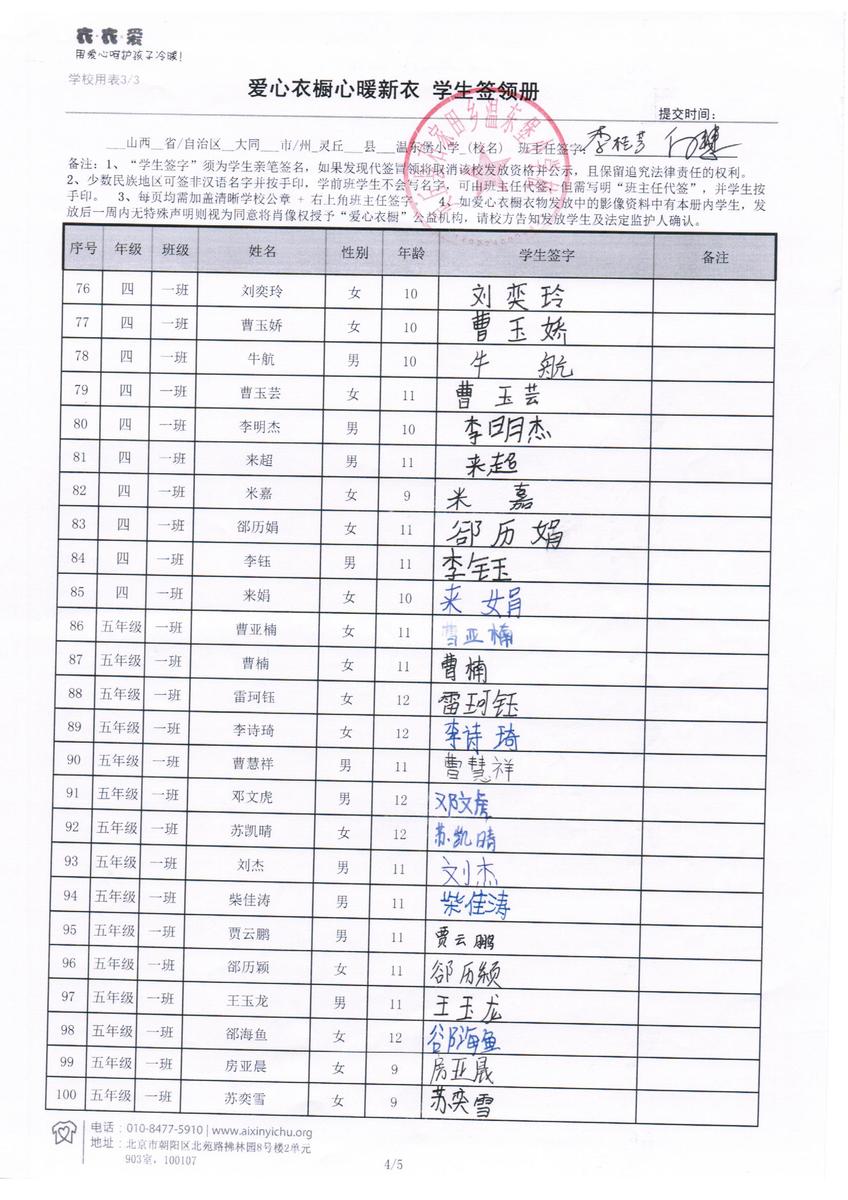 衣·衣·爱
用爱心呵护孩子冷暖!
学校用表3/3
爱心衣橱心暖新衣 学生签领册
提交时间:
___山西__省/自治区__大同___市/州_灵丘___县___温东堡小学_(校名) 班主任签字:李桂芳
备注: 1、“学生签字”须为学生亲笔签名,如果发现代签冒领将取消该校发放资格并公示,且保留追究法律责任的权利。
2、少数民族地区可签非汉语名字并按手印,学前班学生不会写名字,可由班主任代签,但需写明“班主任代签”,并学生按
手印。 3、每页均需加盖清晰学校公章 + 右上角班主任签字 4、如爱心衣橱衣物发放中的影像资料中有本册内学生,发
放后一周内无特殊声明则视为同意将肖像权授予“爱心衣橱”公益机构,请校方告知发放学生及法定监护人确认。
序号 年级 班级 姓名 性别 年龄 学生签字 备注
76 四 一班 刘奕玲 女 10 刘奕玲
77 四 一班 曹玉娇 女 10 曹玉娇
78 四 一班 牛航 男 10 牛航
79 四 一班 曹玉芸 女 11 曹玉芸
80 四 一班 李明杰 男 10 李明杰
81 四 一班 来超 男 11 来超
82 四 一班 米嘉 女 9 米嘉
83 四 一班 郤历娟 女 11 郤历娟
84 四 一班 李钰 男 11 李钰
85 四 一班 来娟 女 10 来娟
86 五年级 一班 曹亚楠 女 11 曹亚楠
87 五年级 一班 曹楠 女 11 曹楠
88 五年级 一班 雷珂钰 女 12 雷珂钰
89 五年级 一班 李诗琦 女 12 李诗琦
90 五年级 一班 曹慧祥 男 11 曹慧祥
91 五年级 一班 邓文虎 男 12 邓文虎
92 五年级 一班 苏凯晴 女 12 苏凯晴
93 五年级 一班 刘杰 男 11 刘杰
94 五年级 一班 柴佳涛 男 11 柴佳涛
95 五年级 一班 贾云鹏 男 11 贾云鹏
96 五年级 一班 郤历颖 女 11 郤历颖
97 五年级 一班 王玉龙 男 11 王玉龙
98 五年级 一班 郤海鱼 女 12 郤海鱼
99 五年级 一班 房亚晨 女 9 房亚晨
100 五年级 一班 苏奕雪 女 9 苏奕雪
电话:010-8477-5910 | www.aixinyichu.org
地址:北京市朝阳区北苑路拂林园8号楼2单元
903室,100107
4/5